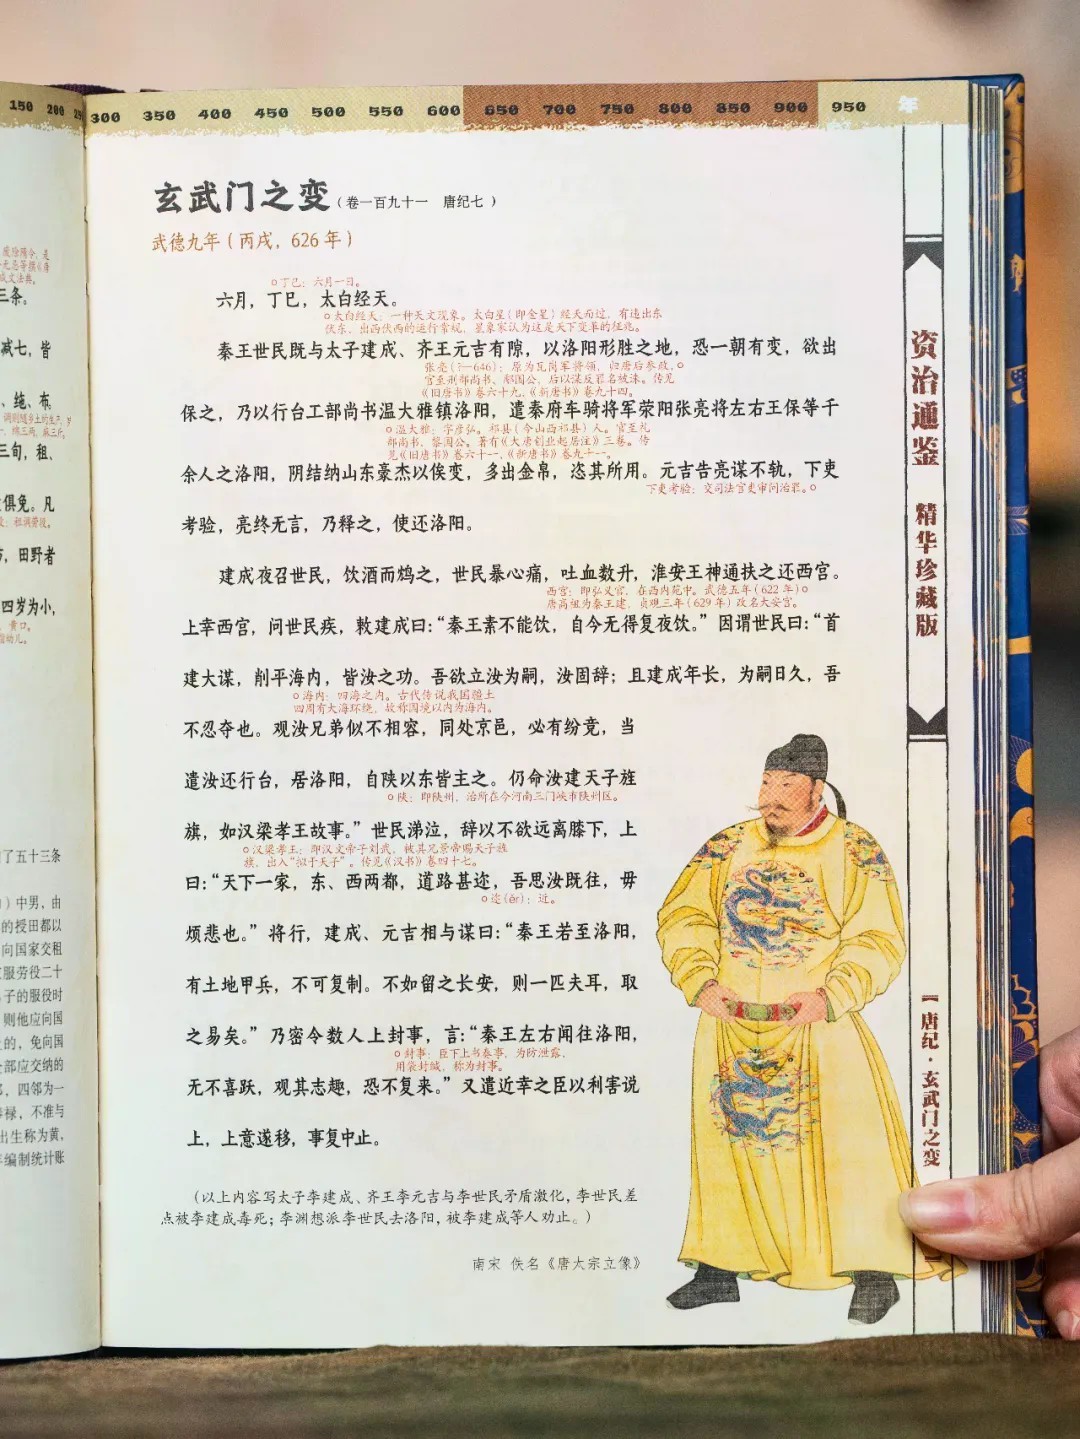 150 200
300 350 400 450 500 550 600 650 700 750 800 850 900 950 年
三条。
减七，皆
、絁、布
三旬，租、
俱免。凡
，田野者
四岁为小，
了五十三条
）中男，由
的授田都以
向国家交租
服劳役二十
子的服役时
则他应向国
的，免向国
部应交纳的
，四邻为一
禄，不准与
出生称为黄，
编制统计账
玄武门之变（卷一百九十一 唐纪七）
武德九年（丙戌，626 年）
丁巳：六月一日。
六月，丁巳，太白经天。
太白经天：一种天文现象。太白星（即金星）经天而过，有违出东
伏东、出西伏西的运行常规，星象家认为这是天下变革的征兆。
秦王世民既与太子建成、齐王元吉有隙，以洛阳形胜之地，恐一朝有变，欲出
张亮（？—646）：原为瓦岗军将领，归唐后参政，
官至刑部尚书、郧国公，后以谋反罪名被诛。传见
《旧唐书》卷六十九、《新唐书》卷九十四。
保之，乃以行台工部尚书温大雅镇洛阳，遣秦府车骑将军荥阳张亮将左右王保等千
温大雅：字彦弘。祁县（今山西祁县）人。官至礼
部尚书、黎国公。著有《大唐创业起居注》三卷。传
见《旧唐书》卷六十一、《新唐书》卷九十一。
余人之洛阳，阴结纳山东豪杰以俟变，多出金帛，恣其所用。元吉告亮谋不轨，下吏
下吏考验：交司法官吏审问治罪。
考验，亮终无言，乃释之，使还洛阳。
建成夜召世民，饮酒而鸩之，世民暴心痛，吐血数升，淮安王神通扶之还西宫。
西宫：即弘义宫，在西内苑中。武德五年（622 年）
唐高祖为秦王建，贞观三年（629 年）改名大安宫。
上幸西宫，问世民疾，敕建成曰：“秦王素不能饮，自今无得复夜饮。”因谓世民曰：“首
建大谋，削平海内，皆汝之功。吾欲立汝为嗣，汝固辞；且建成年长，为嗣日久，吾
海内：四海之内。古代传说我国疆土
四周有大海环绕，故称国境以内为海内。
不忍夺也。观汝兄弟似不相容，同处京邑，必有纷竞，当
遣汝还行台，居洛阳，自陕以东皆主之。仍命汝建天子旌
陕：即陕州，治所在今河南三门峡市陕州区。
旗，如汉梁孝王故事。”世民涕泣，辞以不欲远离膝下，上
汉梁孝王：即汉文帝子刘武，被其兄景帝赐天子旌
旗，出入“拟于天子”。传见《汉书》卷四十七。
曰：“天下一家，东、西两都，道路甚迩，吾思汝既往，毋
迩（ěr）：近。
烦悲也。”将行，建成、元吉相与谋曰：“秦王若至洛阳，
有土地甲兵，不可复制。不如留之长安，则一匹夫耳，取
之易矣。”乃密令数人上封事，言：“秦王左右闻往洛阳，
封事：臣下上书奏事，为防泄露，
用袋封缄，称为封事。
无不喜跃，观其志趣，恐不复来。”又遣近幸之臣以利害说
上，上意遂移，事复中止。
（以上内容写太子李建成、齐王李元吉与李世民矛盾激化，李世民差
点被李建成毒死；李渊想派李世民去洛阳，被李建成等人劝止。）
南宋 佚名《唐太宗立像》
资治通鉴 精华珍藏版
唐纪·玄武门之变